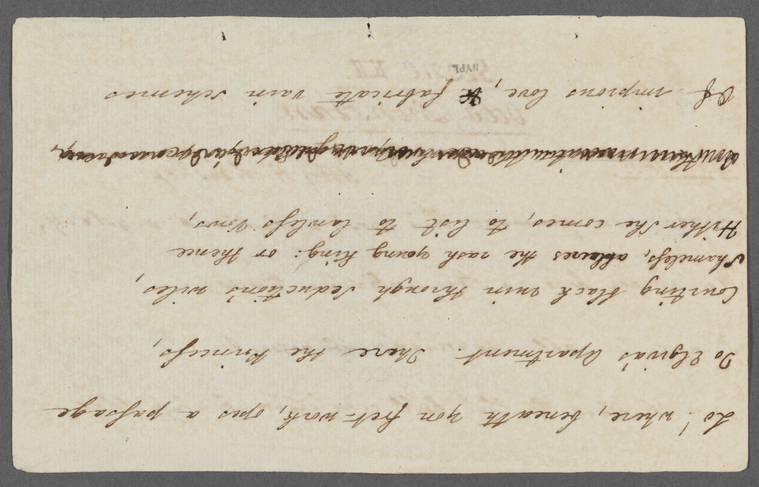 Lo! where, beneath yon fret-work, opes a passage
To Elgiva's Apartment. There the Princess,
Courting black ruin through Seduction's wiles,
Shameless, allures the rash young king: or thence
Hither She comes, to list to lawless Vows,
Of impious love, & fabricate vain schemes
NYPL